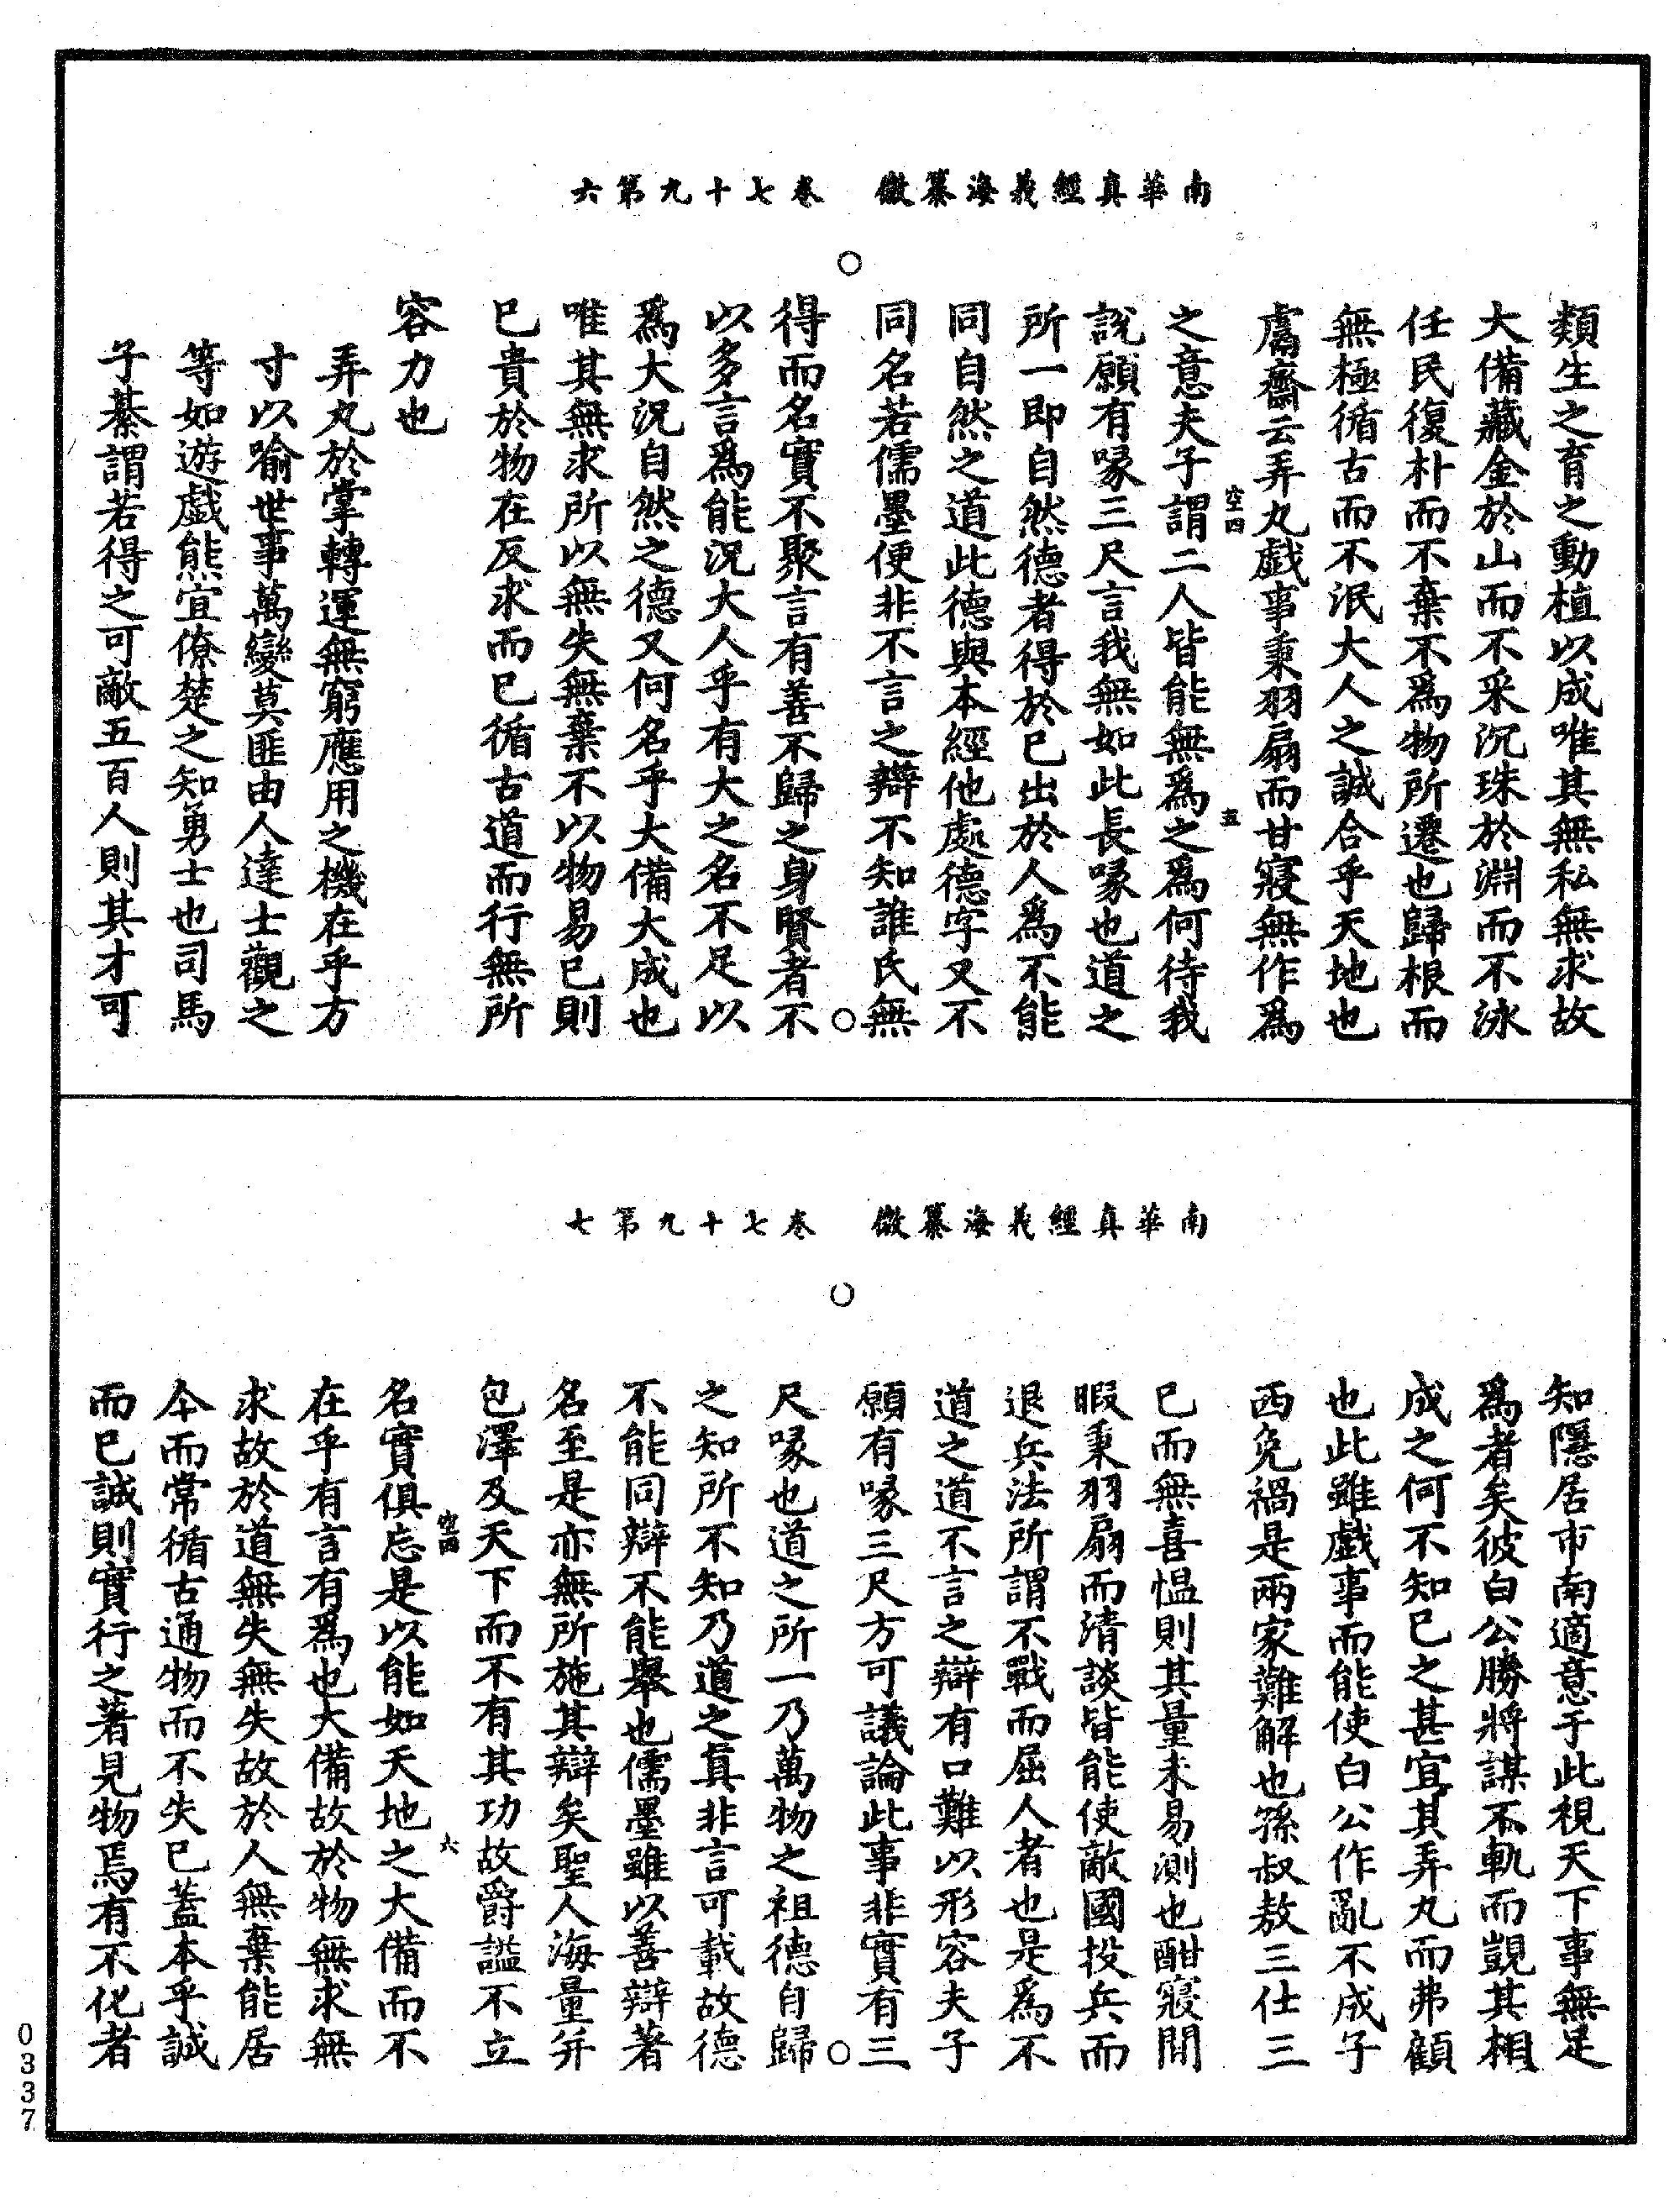 南華真經義海纂微　卷七十九第六
類生之育之動植以成唯其無私無求故
大備藏金於山而不采沉珠於淵而不泳
任民復朴而不棄不爲物所遷也歸根而
無極循古而不泯大人之誠合乎天地也
鬳齋云弄丸戲事秉羽扇而甘寢無作爲
之意夫子謂二人皆能無爲之爲何待我
空四
五
說願有喙三尺言我無如此長喙也道之
所一即自然德者得於己出於人爲不能
同自然之道此德與本經他處德字又不
同名若儒墨便非不言之辯不知誰氏無
得而名實不聚言有善不歸之身賢者不
以多言爲能況大人乎有大之名不足以
爲大況自然之德又何名乎大備大成也
唯其無求所以無失無棄不以物易己則
己貴於物在反求而已循古道而行無所
容力也
弄丸於掌轉運無窮應用之機在乎方
寸以喻世事萬變莫匪由人達士觀之
等如遊戲熊宜僚楚之知勇士也司馬
子綦謂若得之可敵五百人則其才可
南華真經義海纂微　卷七十九第七
知隱居市南適意于此視天下事無足
爲者矣彼白公勝將謀不軌而覬其相
成之何不知已之甚宜其弄丸而弗顧
也此雖戲事而能使白公作亂不成子
西免禍是兩家難解也孫叔敖三仕三
已而無喜慍則其量未易測也酣寢閒
暇秉羽扇而清談皆能使敵國投兵而
退兵法所謂不戰而屈人者也是爲不
道之道不言之辯有口難以形容夫子
願有喙三尺方可議論此事非實有三
尺喙也道之所一乃萬物之祖德自歸
之知所不知乃道之真非言可載故德
不能同辯不能舉也儒墨雖以善辯著
名至是亦無所施其辯矣聖人海量并
包澤及天下而不有其功故爵謚不立
空四
六
名實俱忘是以能如天地之大備而不
在乎有言有爲也大備故於物無求無
求故於道無失無失故於人無棄能居
今而常循古通物而不失已蓋本乎誠
而已誠則實行之著見物焉有不化者
0337